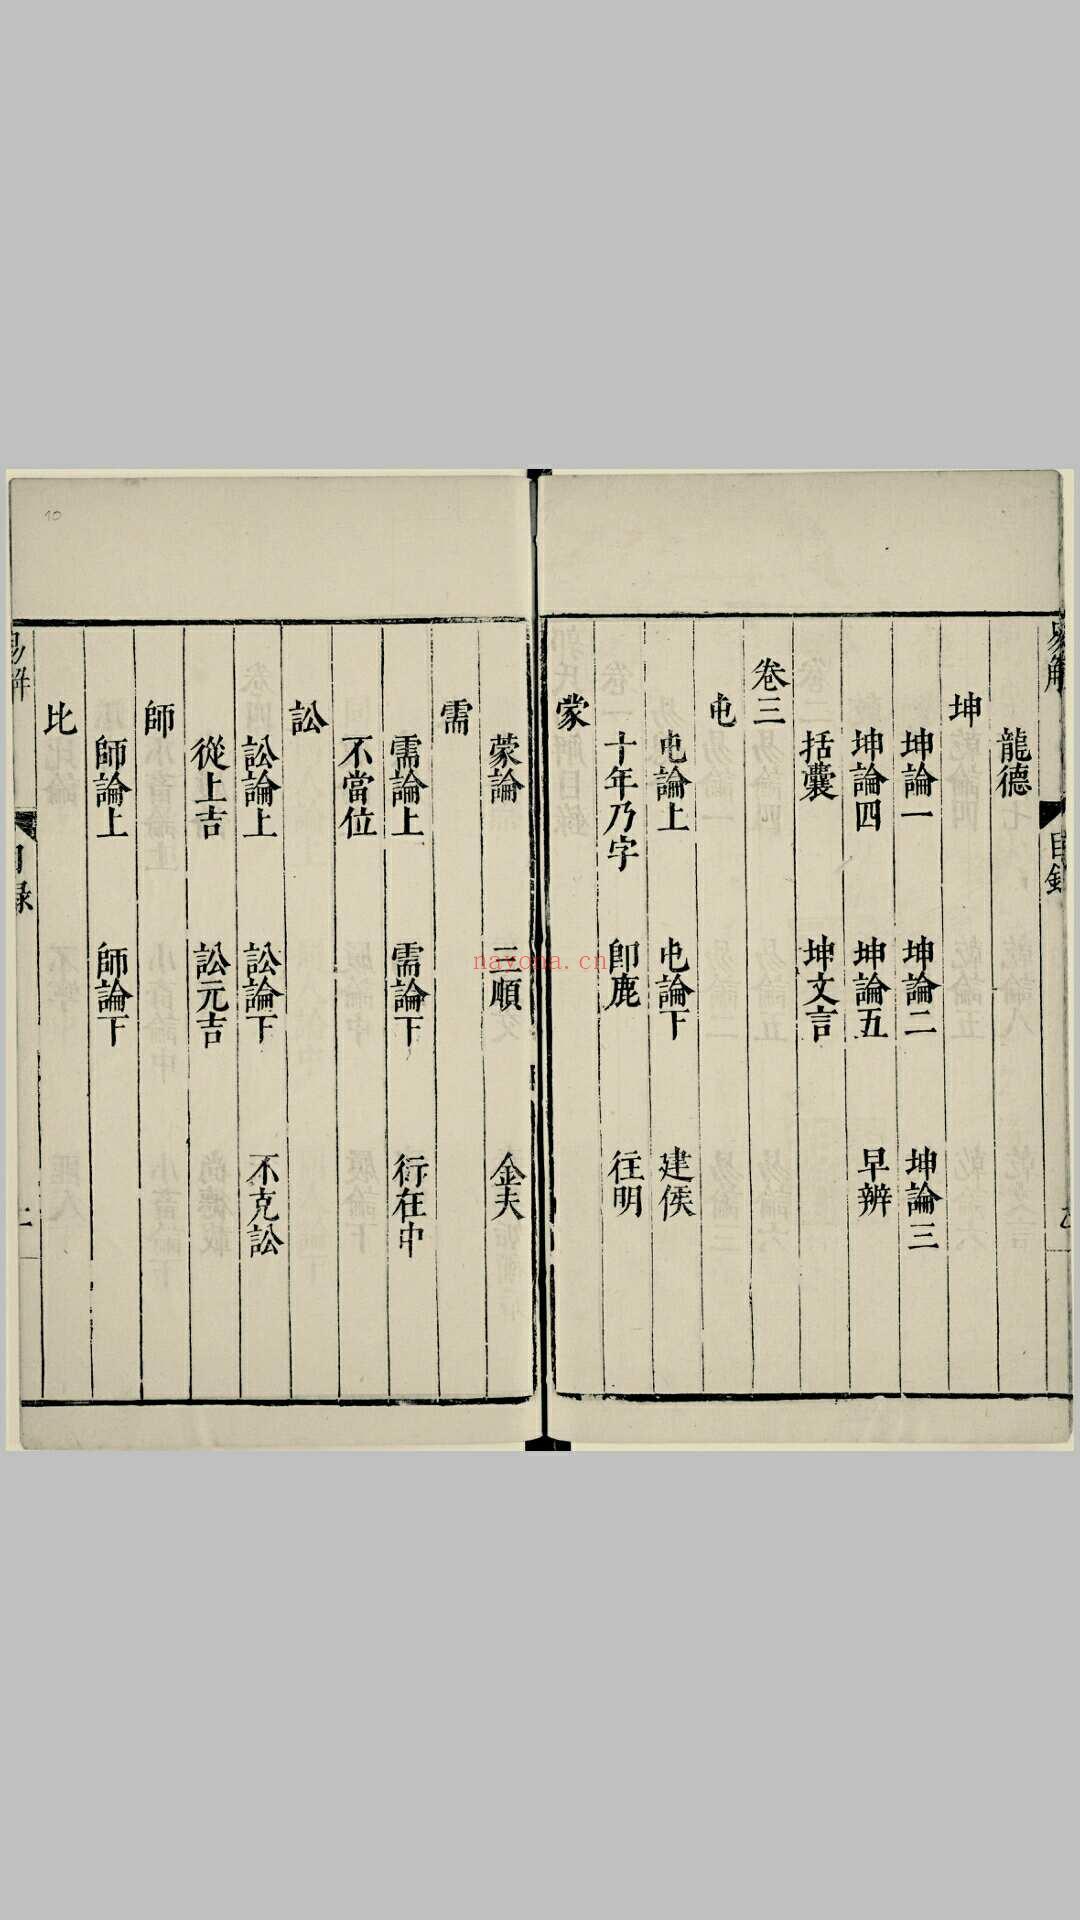 易解 目錄
龍德
坤
坤論一 坤論二 坤論三
坤論四 坤論五 早辨
括囊 坤文言
卷三
屯
屯論上 屯論下 建侯
十年乃字 卽鹿 往明
蒙
蒙論 三順 金夫
需
需論上 需論下 衍在中
不當位
訟
訟論上 訟論下 不克訟
從上吉 訟元吉
師
師論上 師論下
比
易解 目錄
10
nayona.cn